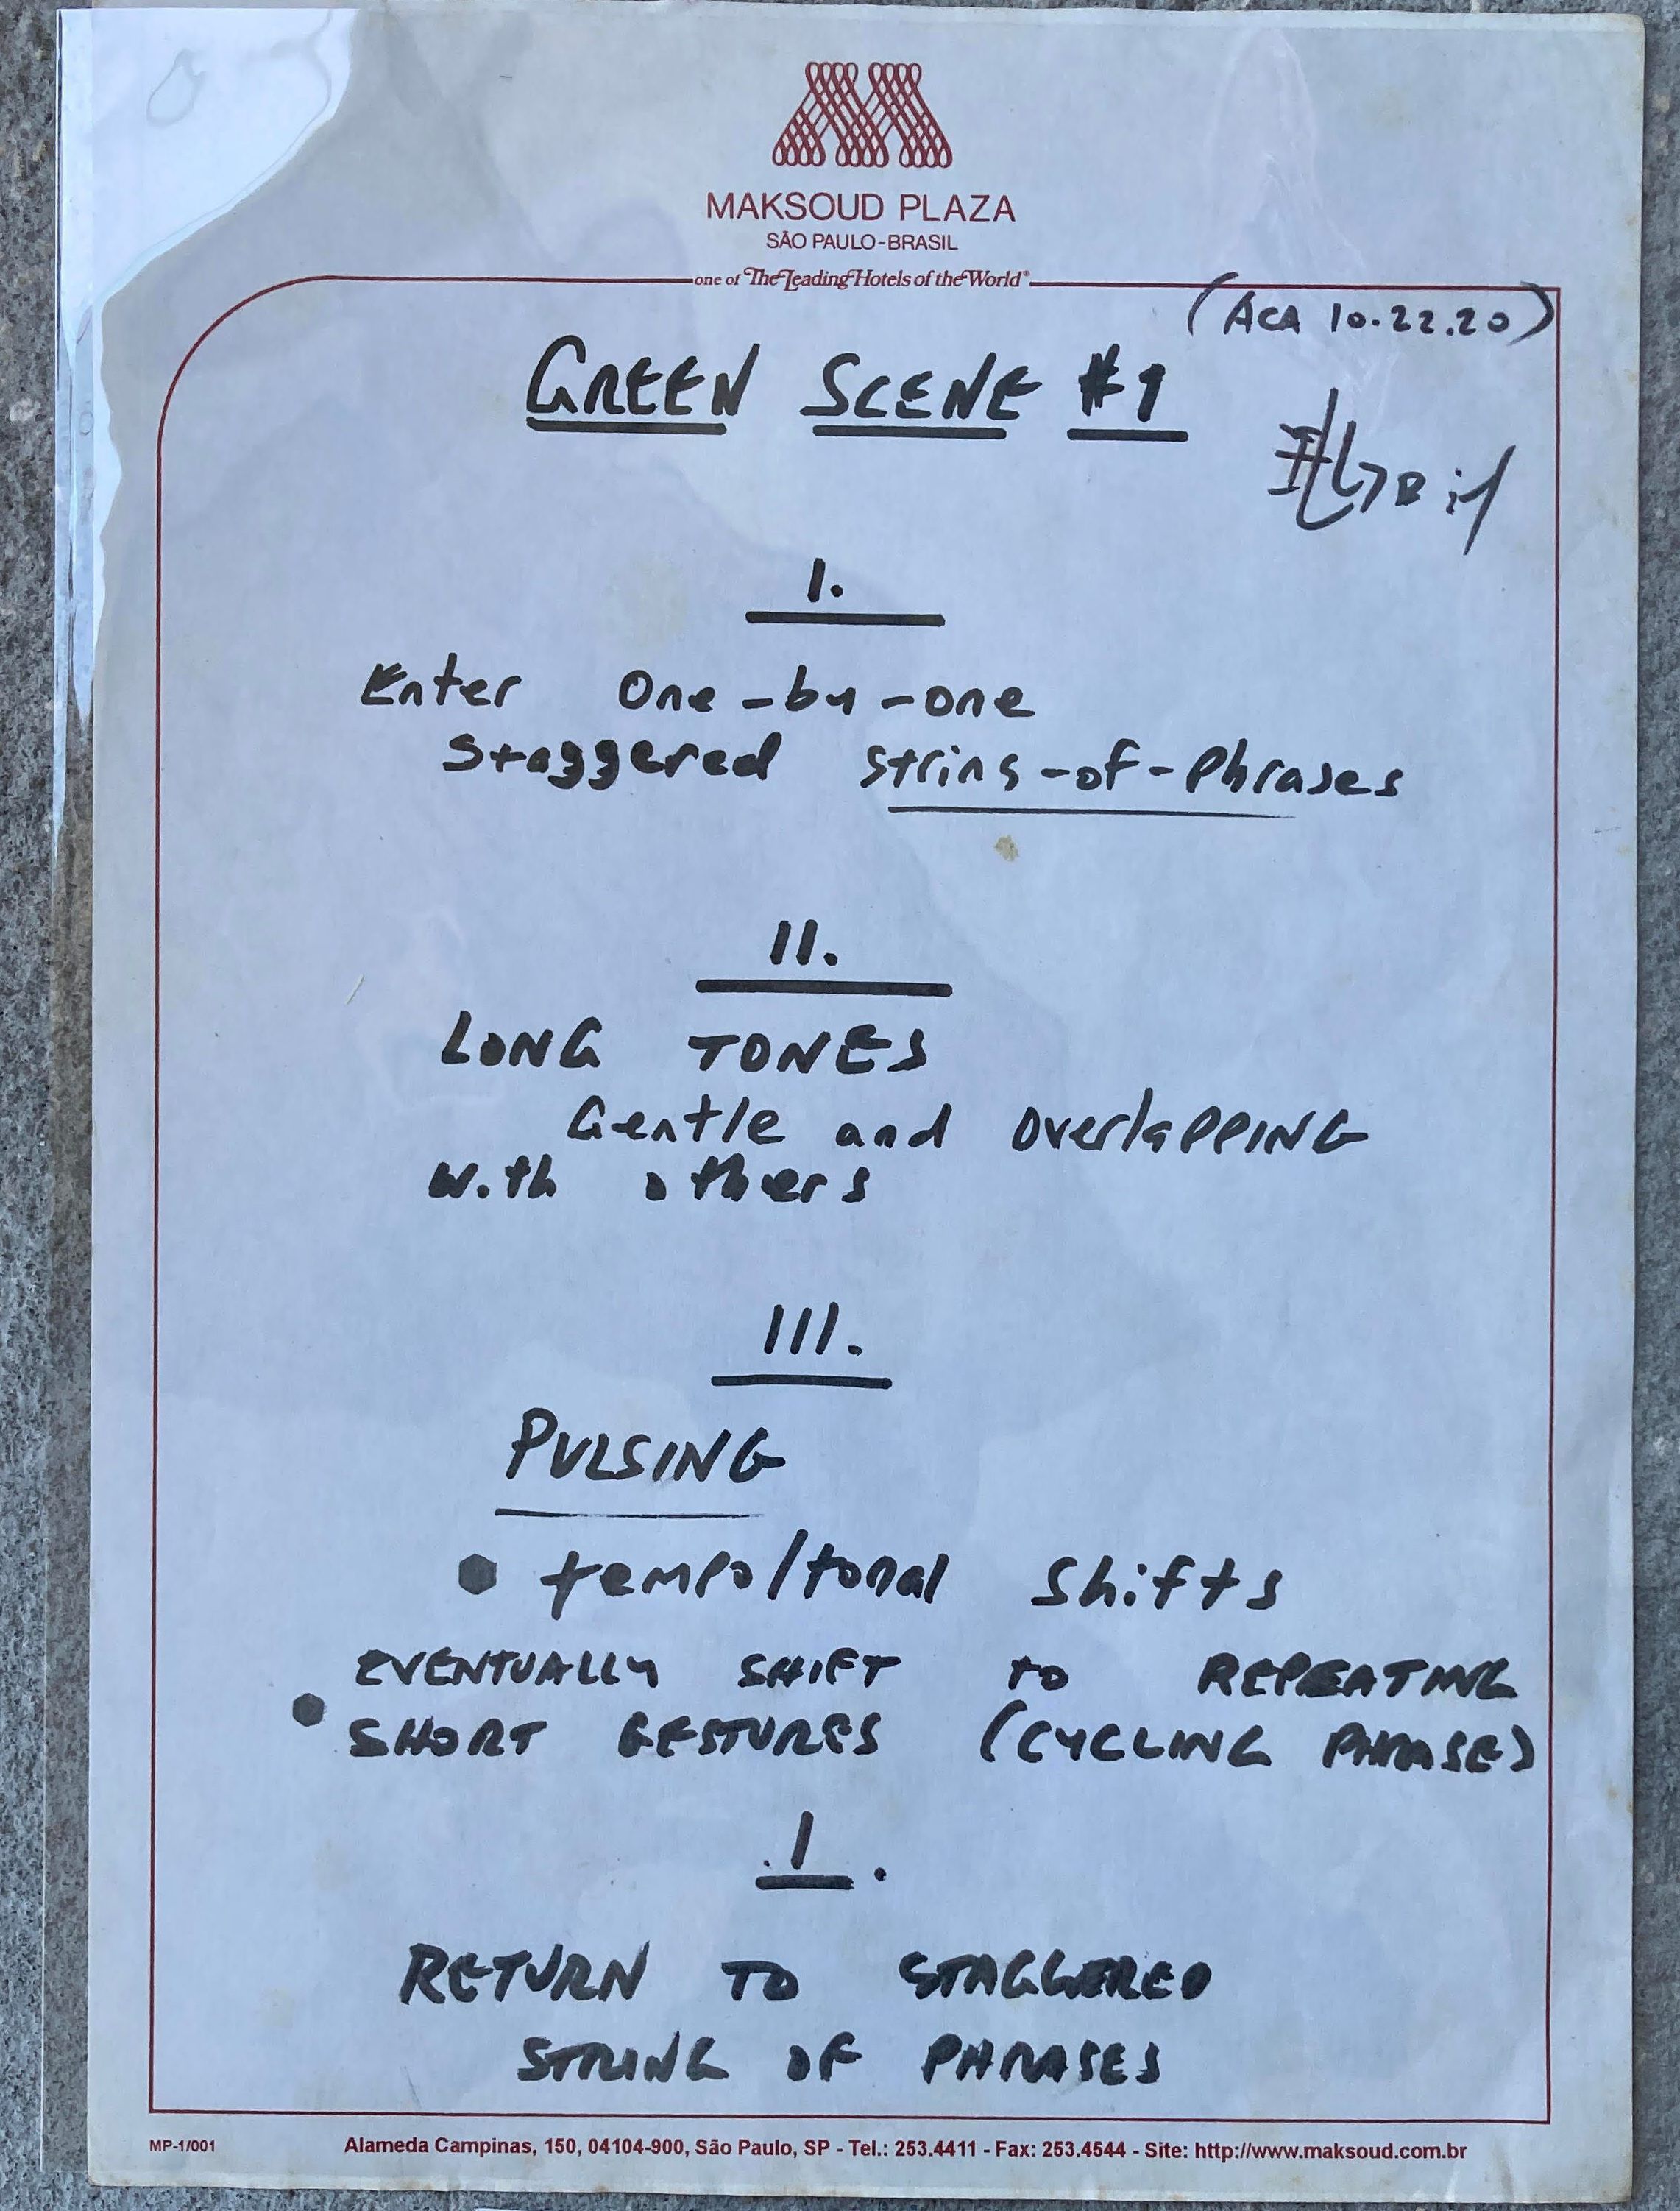 MAKSOUD PLAZA
SÃO PAULO-BRASIL
one of The Leading Hotels of the World®
(ACA 10.22.20)
GREEN SCENE #1
I.
Enter One-by-one
Staggered string-of-Phrases
II.
LONG TONES
Gentle and OverlaPPING
with others
III.
PULSING
• tempo/tonal shifts
EVENTUALLY SHIFT to REPEATING
• SHORT GESTURES (CYCLING PHRASE)
.I.
RETURN TO STAGGERED
STRING OF PHRASES
MP-1/001
Alameda Campinas, 150, 04104-900, São Paulo, SP - Tel.: 253.4411 - Fax: 253.4544 - Site: http://www.maksoud.com.br